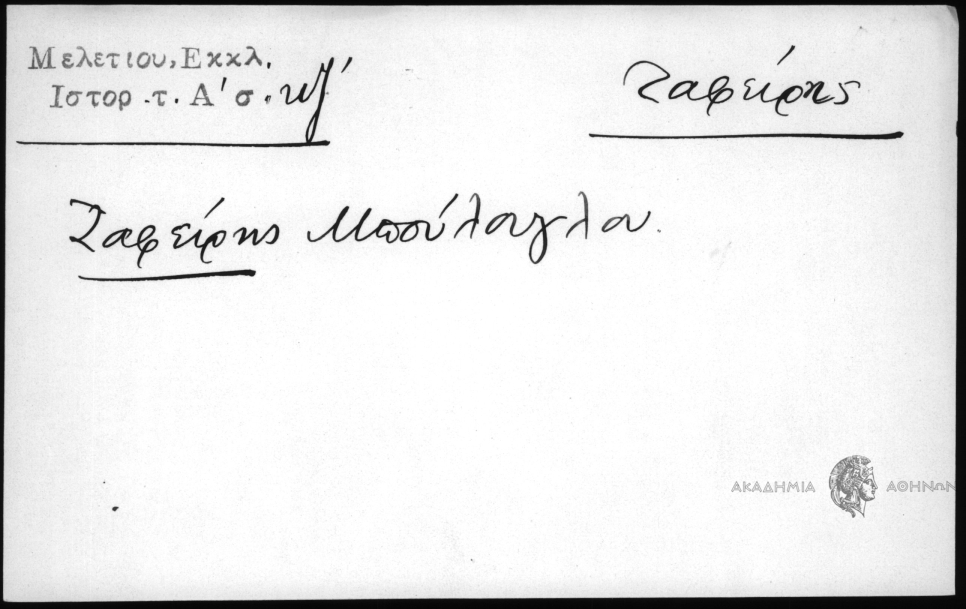 Μελετιου, Εκκλ.
Ιστορ. τ. Α' σ.
Ζαφείρης
Ζαφείρης Μπούλουγλου.
ΑΚΑΔΗΜΙΑ ΑΘΗΝΩΝ